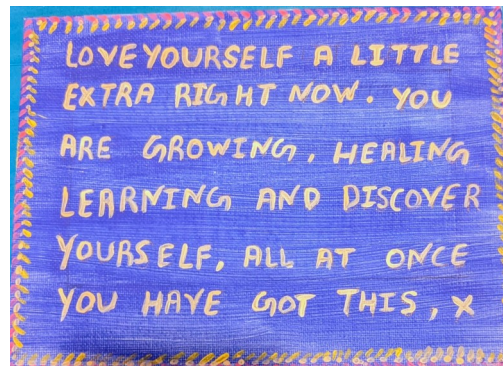 LOVE YOURSELF A LITTLE
EXTRA RIGHT NOW. YOU
ARE GROWING, HEALING
LEARNING AND DISCOVER
YOURSELF, ALL AT ONCE
YOU HAVE GOT THIS, X